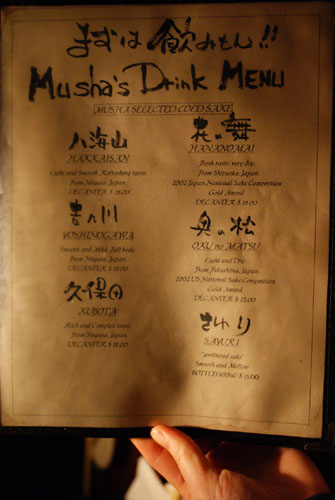 まずは飲みもん!!
Musha's Drink MENU
MUSHA SELECTED COLD SAKE
八海山
HAKKAISAN
Light and Smooth. Refreshing taste.
from Niigata, Japan
DECANTER $
吉乃川
YOSHINOGAWA
Smooth and Mild. Full body.
from Niigata, Japan
DECANTER $ 18.00
久保田
KUBOTA
Rich and Complex taste.
from Niigata Japan
DECANTER $ 18.00
花の舞
HANANOMAI
Fresh taste very dry.
from Shizuoka, Japan
2002 Japan National Sake Competition
Gold Award
DECANTER $ 18.00
奥の松
OKU no MATSU
Light and Dry.
from Fukushima, Japan
2002 US National Sake Competition
Gold Award
DECANTER $ 22.00
さゆり
SAYURI
"unfiltered sake"
Smooth and Mellow
BOTTLE(300ml) $ 15.00